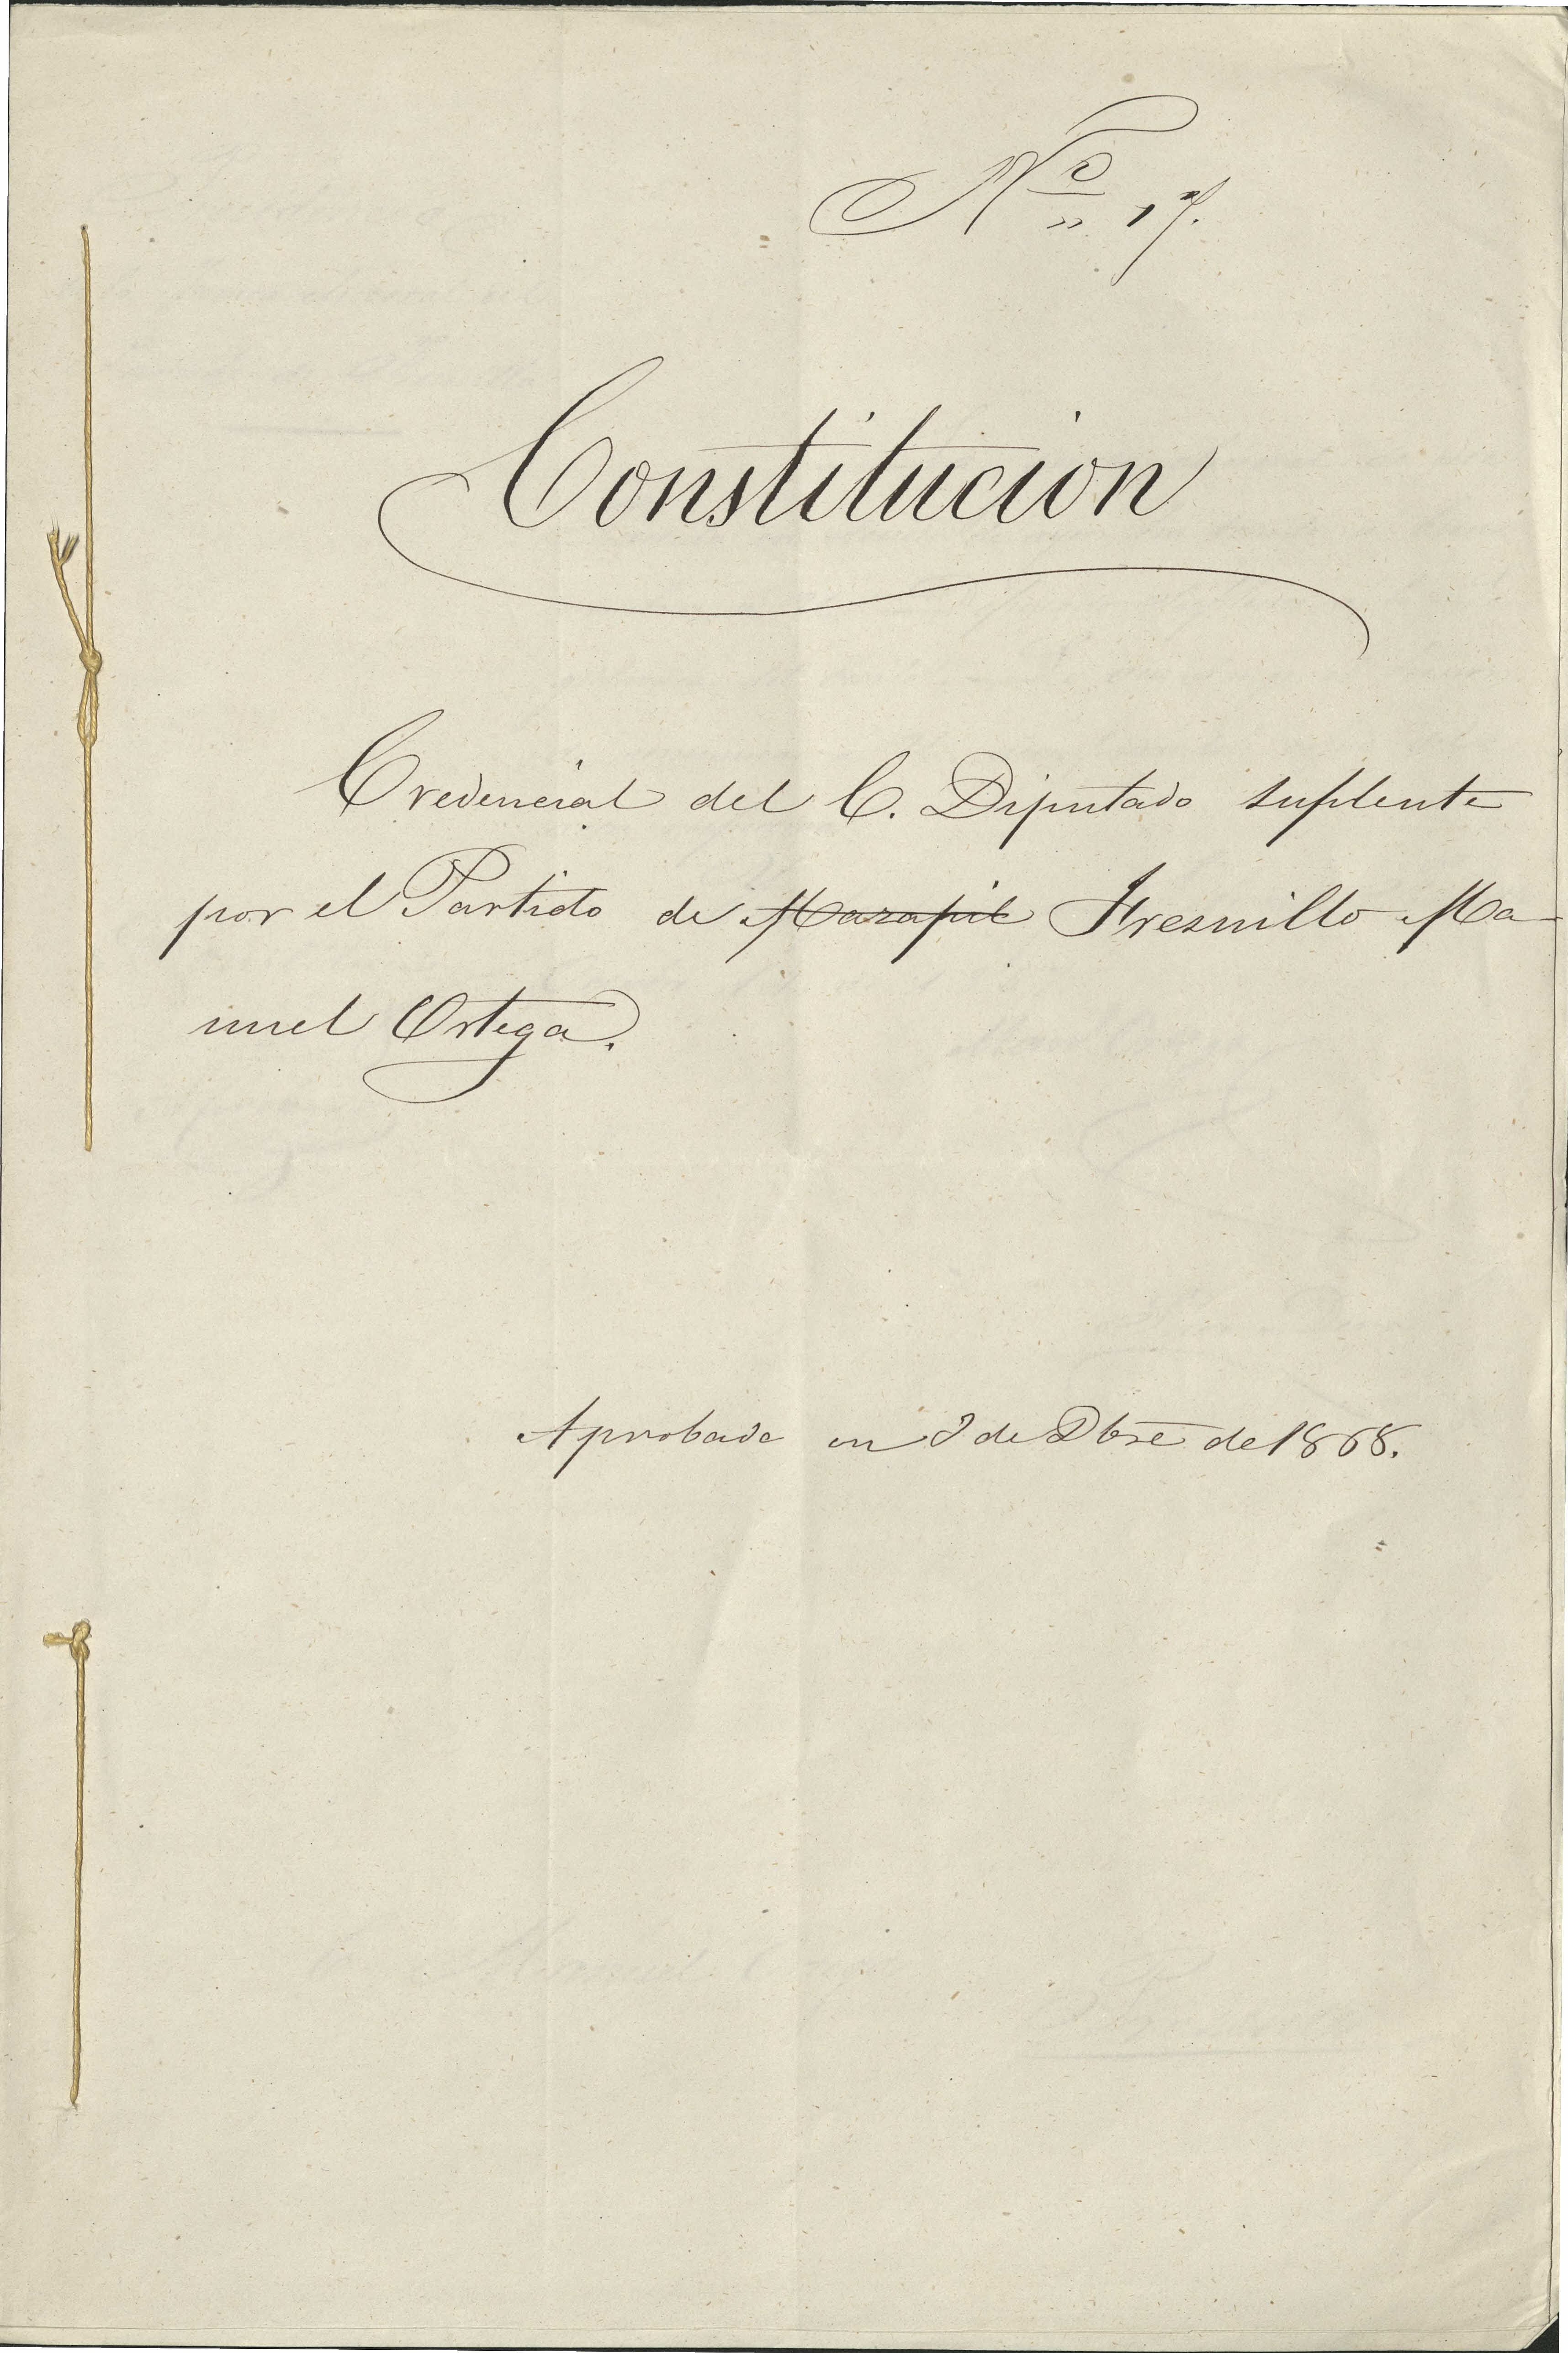 Nº 17.
Constitucion
Credencial del C. Diputado suplente
por el Partido de Mazapil Fresnillo Ma-
nuel Ortega.
Aprobada en de Dbre de 1868.